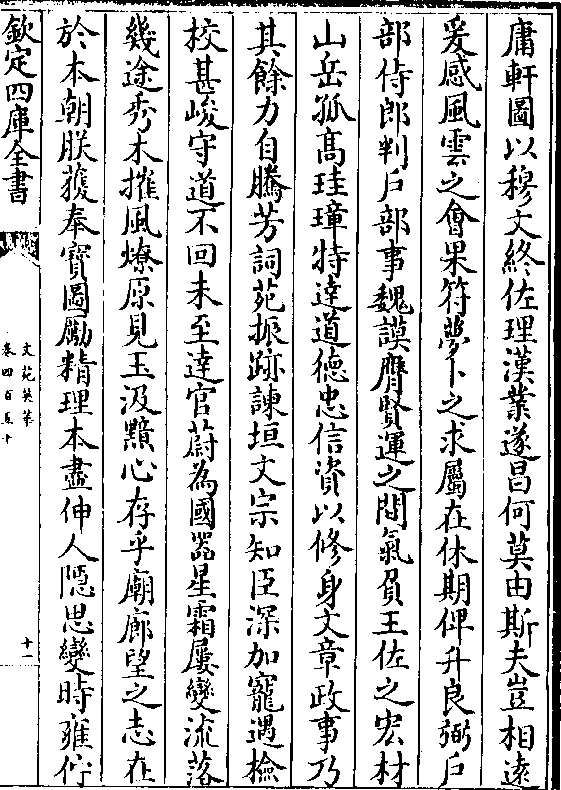 庸軒圖以穆文終佐理漢業遂昌何莫由斯夫豈相遠
爰感風雲之會果符夢卜之求屬在休期俾升良弼戶
部侍郎判戶部事魏謨膺賢運之間氣負王佐之宏材
山岳孤髙珪璋特達道德忠信資以修身文章政事乃
其餘力自騰芳詞苑振跡諫垣文宗知臣深加寵遇檢
校甚峻守道不回未至達官蔚為國器星霜屢變流落
幾途秀木摧風燎原見玉汲黯心存乎廟廊望之志在
於本朝朕獲奉寶圖勵精理本盡伸人隱思變時雍佇
欽定四庫全書
文苑英華
卷四百五十
十一